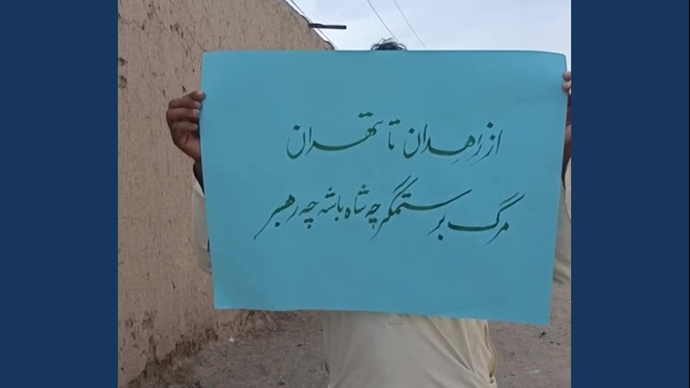 از زاهدان تا تهران
مرگ بر ستمگر چه شاه باشه چه رهبر